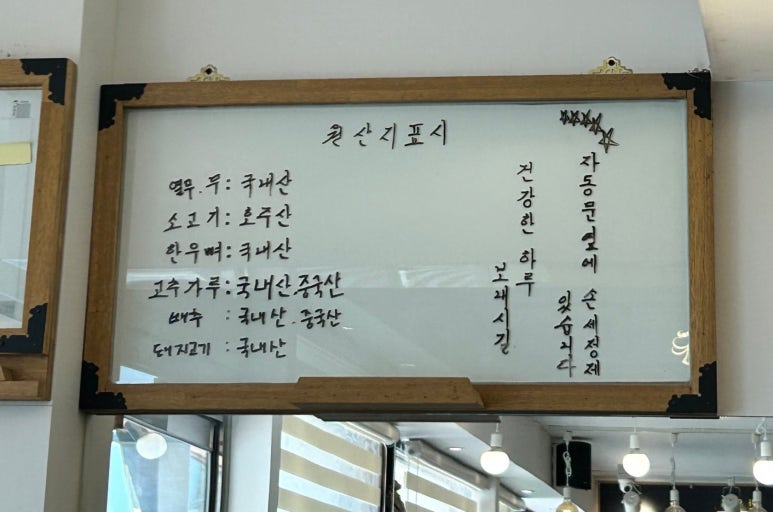 원산지표시
열무.무: 국내산
소고기: 호주산
한우뼈: 국내산
고추가루: 국내산.중국산
배추 : 국내산.중국산
돼지고기 : 국내산
자동문옆에 손세정제
있습니다
건강한 하루
보내시길